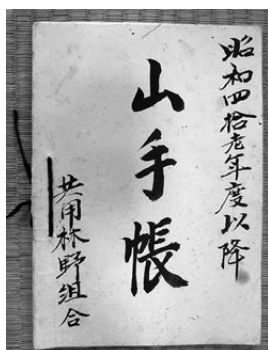 昭和四拾壱年度以降
山手帳
共用林野組合